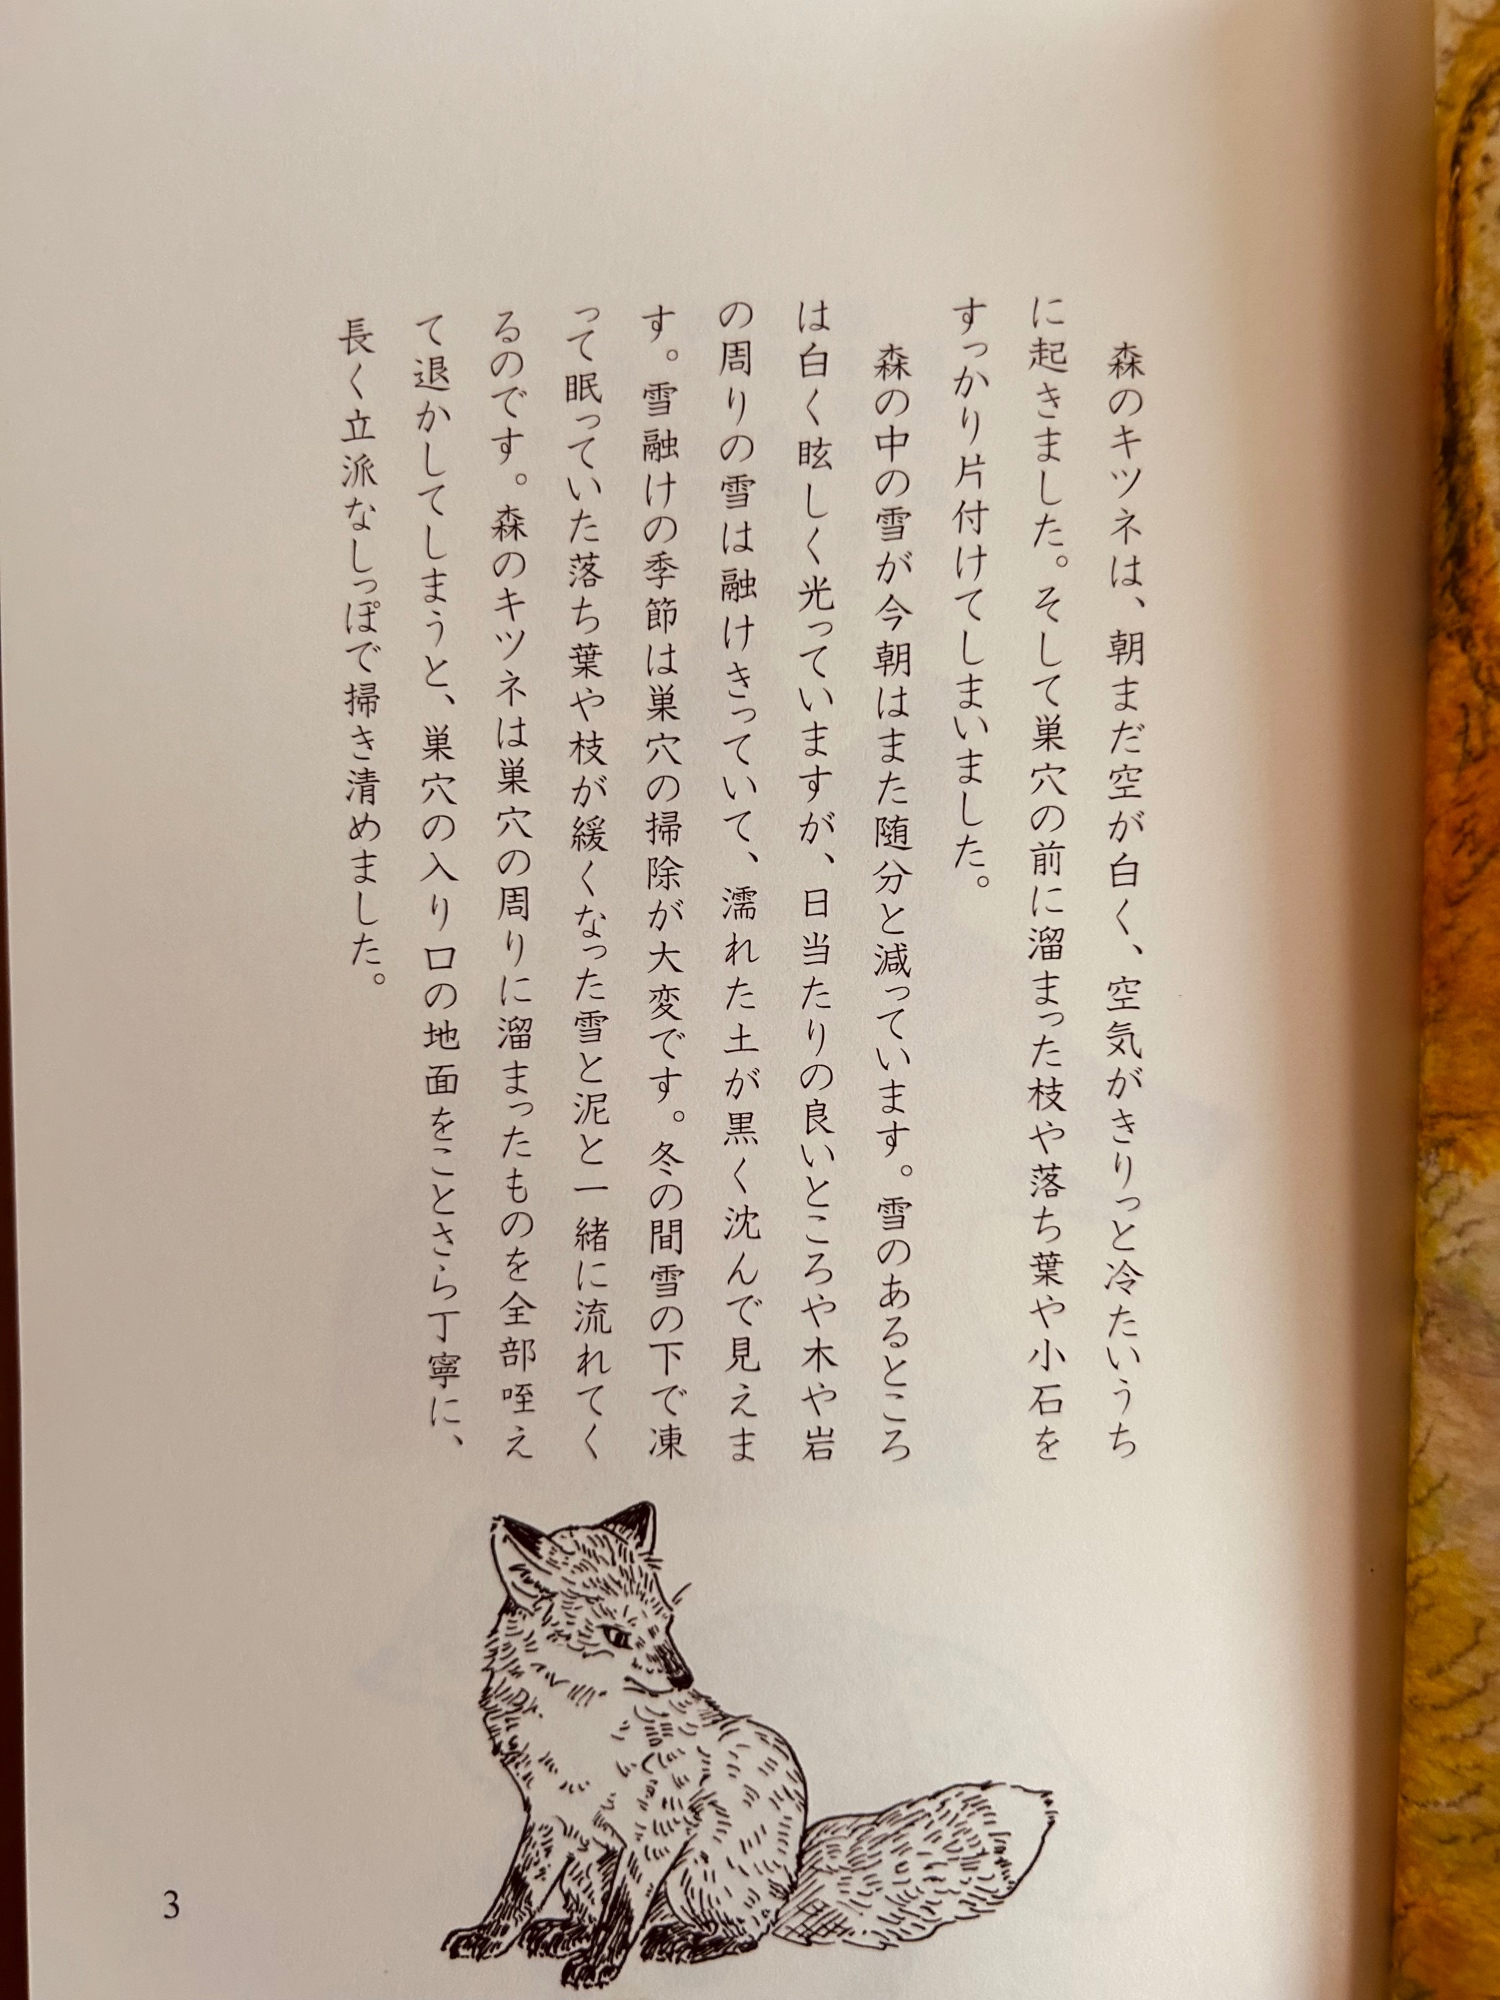 森のキツネは、朝まだ空が白く、空気がきりっと冷たいうち
に起きました。そして巣穴の前に溜まった枝や落ち葉や小石を
すっかり片付けてしまいました。
森の中の雪が今朝はまた随分と減っています。雪のあるところ
は白く眩しく光っていますが、日当たりの良いところや木や岩
の周りの雪は融けきっていて、濡れた土が黒く沈んで見えま
す。雪融けの季節は巣穴の掃除が大変です。冬の間雪の下で凍
って眠っていた落ち葉や枝が緩くなった雪と泥と一緒に流れてく
るのです。森のキツネは巣穴の周りに溜まったものを全部咥え
て退かしてしまうと、巣穴の入り口の地面をことさら丁寧に、
長く立派なしっぽで掃き清めました。
3